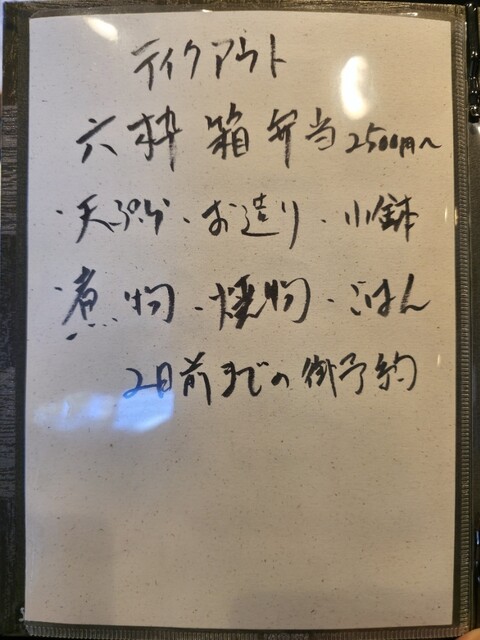 テイクアウト
六枠 箱 弁当 2500円〜
・天ぷら・お造り・小鉢
煮物・焼物・ごはん
2日前までの御予約